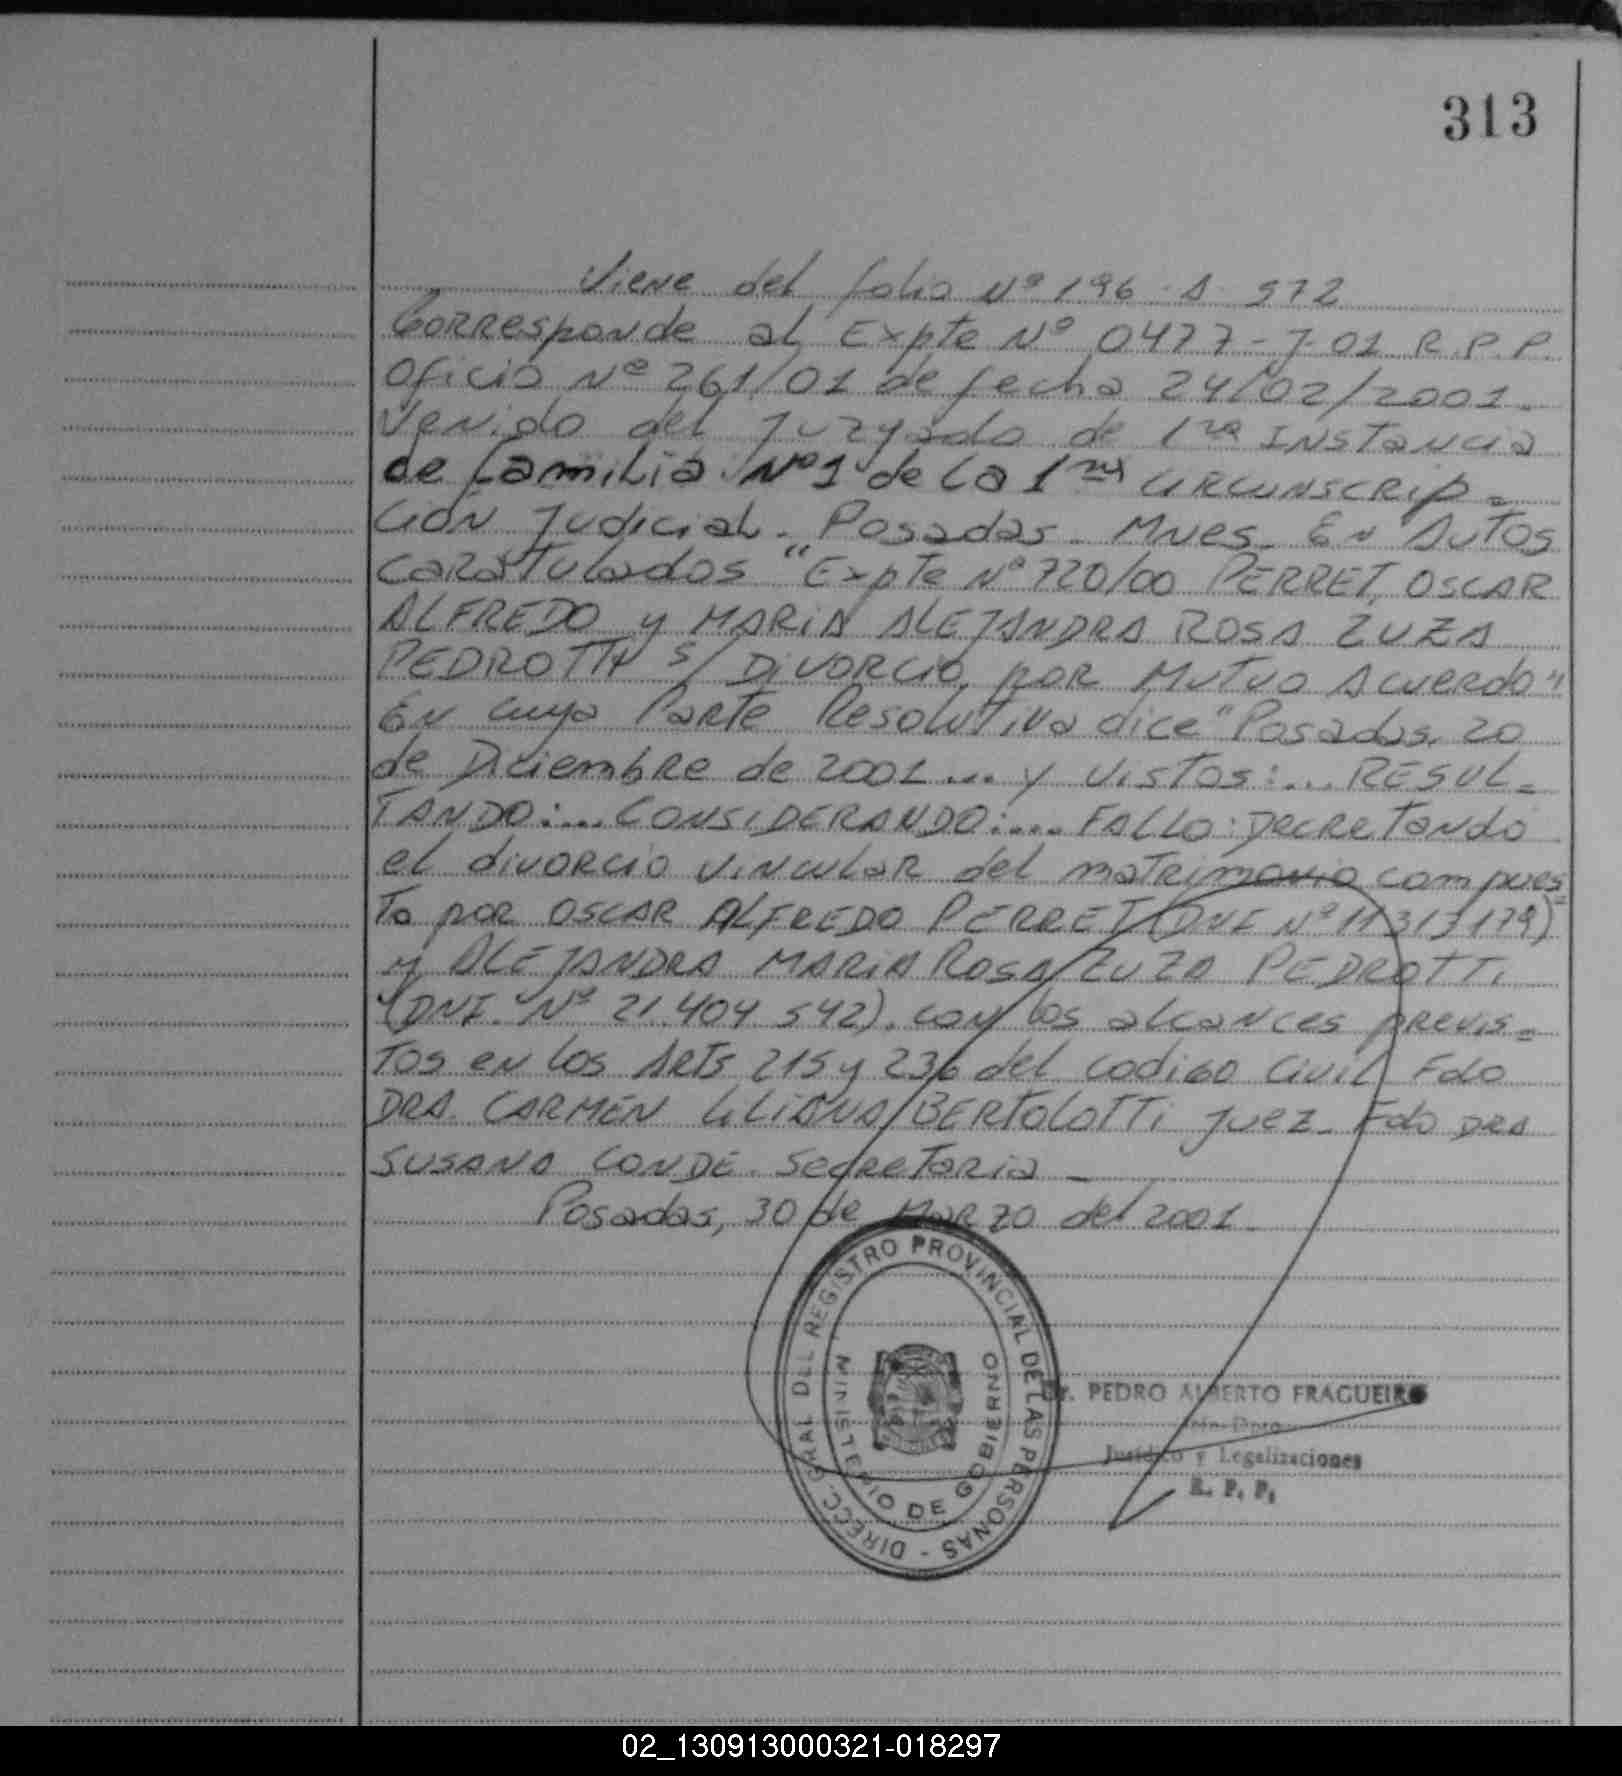 313
Viene del folio Nº 196 A 572
Corresponde al Expte Nº 0477-J-01 R.P.P.
Oficio Nº 261/01 de fecha 24/02/2001.
Venido del Juzgado de 1ra INSTancia
de familia Nº 1 de la 1ra circunscrip=
ción Judicial. Posadas. Mnes. En Autos
caratulados "Expte Nº 720/00 PERRET, OSCAR
ALFREDO y MARIA ALEJANDRA ROSA ZUZA
PEDROTTI s/ DIVORCIO, por Mutuo Acuerdo"
En cuya Parte Resolutiva dice "Posadas, 20
de Diciembre de 2001 ... y vistos:... RESUL=
TANDO:... CONSIDERANDO:.... FALLO: Decretando
el divorcio vincular del matrimonio compues=
to por OSCAR ALFREDO PERRET (DNI Nº 11313179)
y ALEJANDRA MARIA ROSA ZUZA PEDROTTI
(DNI. Nº 21.404.542), con los alcances previs=
Tos en los Arts 215 y 236 del codigo Civil Fdo
DRA. CARMEN LILIANA BERTOLOTTI Juez. Fdo DRA
SUSANA CONDE. Secretaria
Posadas, 30 de Marzo del 2001.
DIRECC. GRAL DEL REGISTRO PROVINCIAL DE LAS PERSONAS -
MINISTERIO DE GOBIERNO
Dr. PEDRO ALBERTO FRAGUEIRO
Dpto
Jurídico y Legalizaciones
R. P. P.
02_130913000321-018297